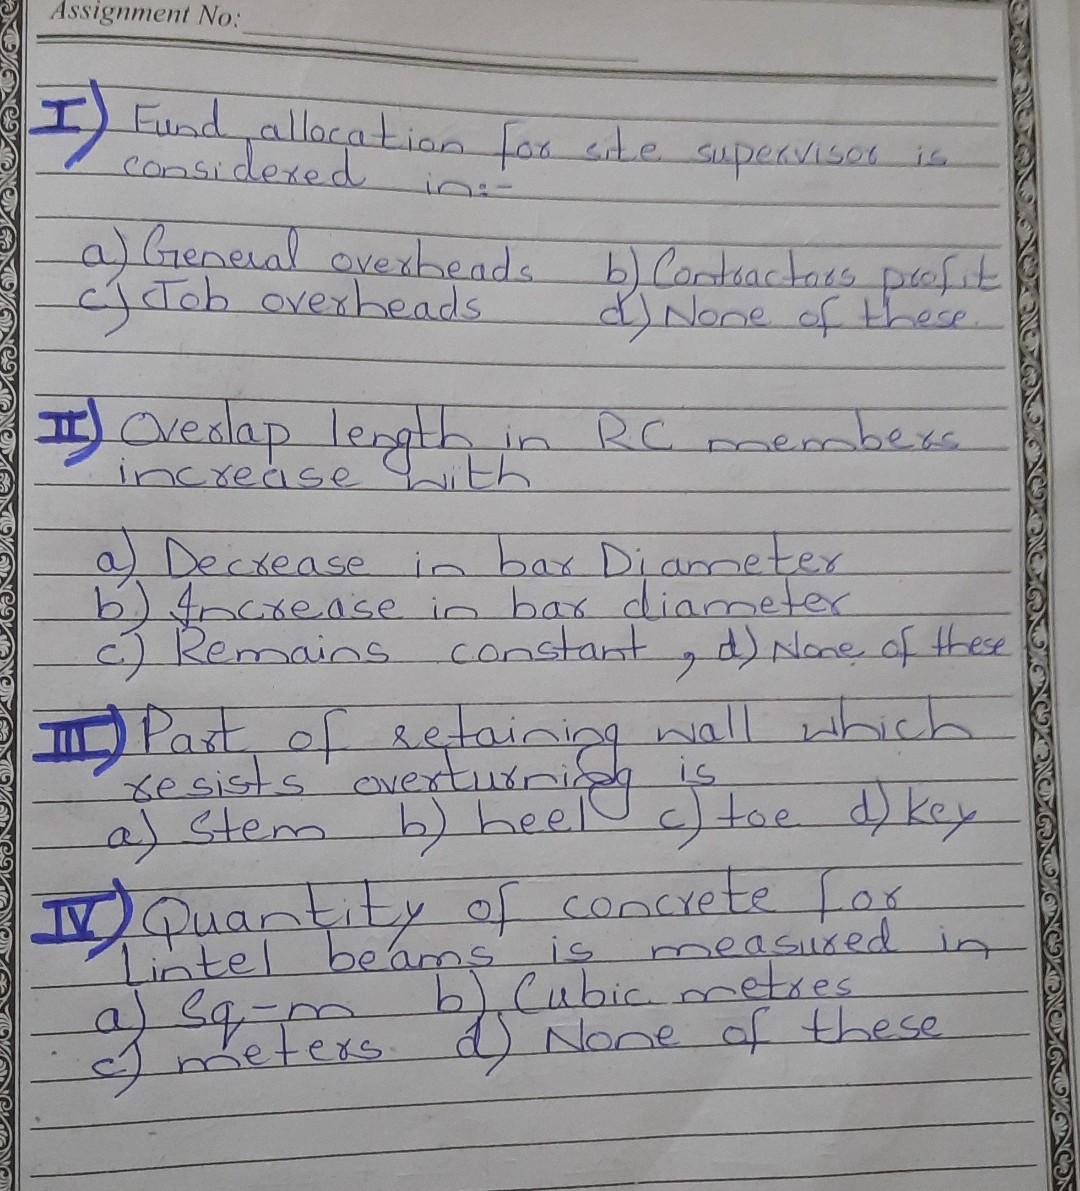 Assignment No:
I) Fund allocation for site supervisor is
considered in:-
a) General overheads b) Contractors profit
c) Job overheads d) None of these.
II) Overlap length in RC members
increase with
a) Decrease in bar Diameter
b) Increase in bar diameter
c) Remains constant, d) None of these
III) Part of retaining wall which
resists overturning is
a) Stem b) heel c) toe d) key
IV) Quantity of concrete for
Lintel beams is measured in
a) Sq-m b) Cubic metres
c) meters. d) None of these